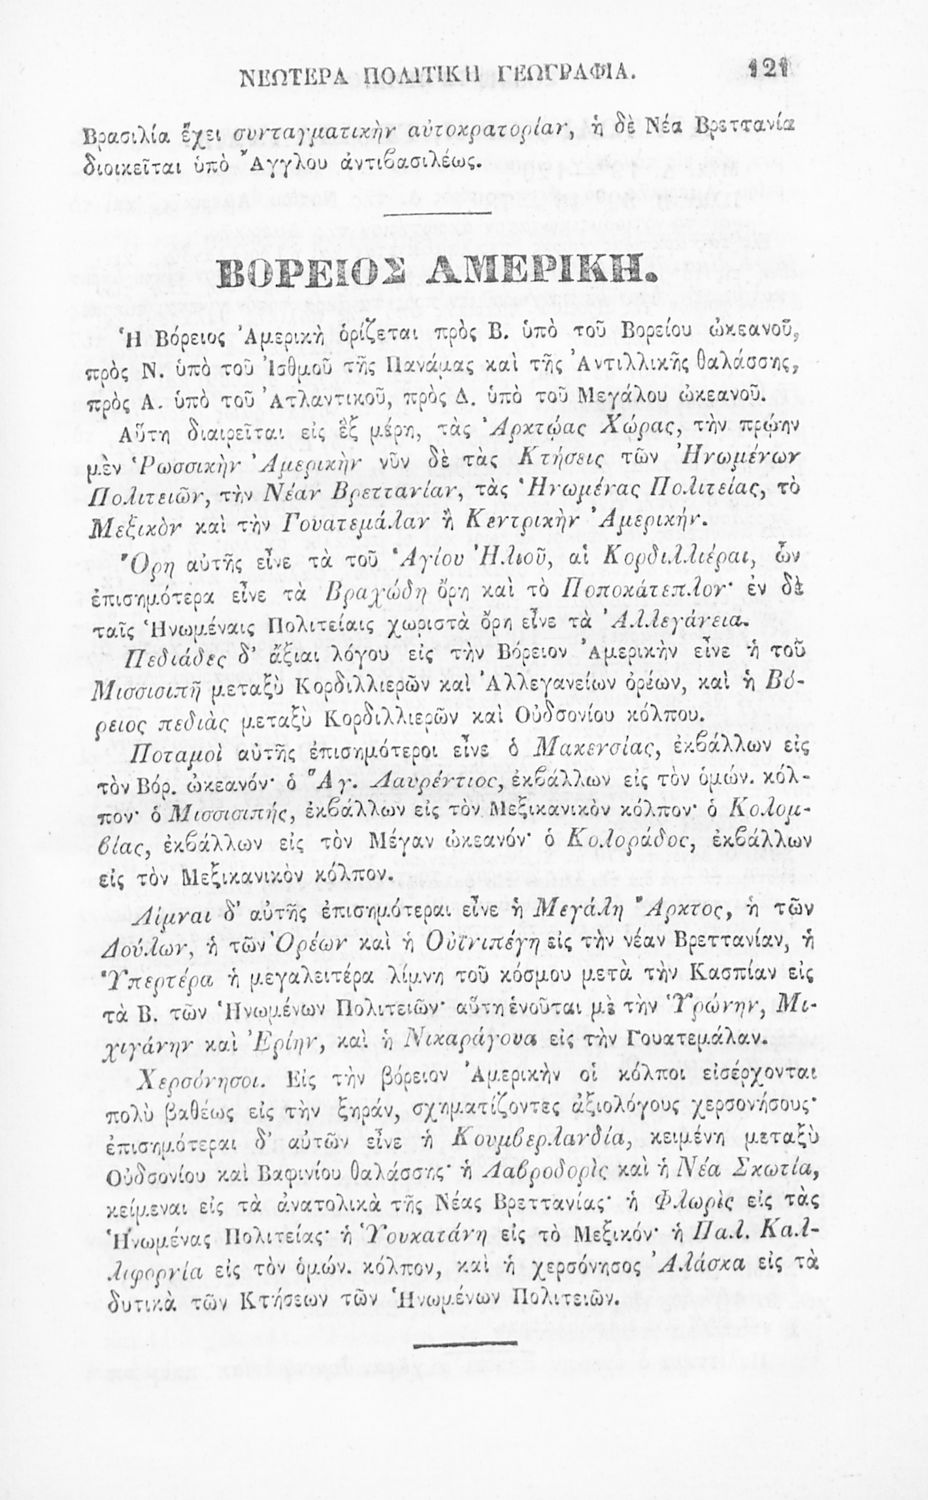 ΝΕΩΤΕΡΑ ΠΟΛΙΤΙΚΗ ΓΕΩΓΡΑΦΙΑ. 121
Βρασιλία ἔχει συνταγματικὴν αὐτοκρατορίαν, ἡ δὲ Νέα Βρεττανία
διοικεῖται ὑπὸ Ἄγγλου ἀντιβασιλέως.
ΒΟΡΕΙΟΣ ΑΜΕΡΙΚΗ.
Ἡ Βόρειος Ἀμερικὴ ὁρίζεται πρὸς Β. ὑπὸ τοῦ Βορείου ὠκεανοῦ,
πρὸς Ν. ὑπὸ τοῦ Ἰσθμοῦ τῆς Πανάμας καὶ τῆς Ἀντιλλικῆς θαλάσσης,
πρὸς Α. ὑπὸ τοῦ Ἀτλαντικοῦ, πρὸς Δ. ὑπὸ τοῦ Μεγάλου ὠκεανοῦ.
Αὕτη διαιρεῖται εἰς ἓξ μέρη, τὰς Ἀρκτῴας Χώρας, τὴν πρῴην
μὲν Ῥωσσικὴν Ἀμερικὴν νῦν δὲ τὰς Κτήσεις τῶν Ἡνωμένων
Πολιτειῶν, τὴν Νέαν Βρεττανίαν, τὰς Ἡνωμένας Πολιτείας, τὸ
Μεξικὸν καὶ τὴν Γουατεμάλαν ἢ Κεντρικὴν Ἀμερικήν.
Ὄρη αὐτῆς εἶνε τὰ τοῦ Ἁγίου Ἠλιοῦ, αἱ Κορδιλλιέραι, ὧν
ἐπισημότερα εἶνε τὰ Βραχώδη ὄρη καὶ τὸ Ποποκάτεπλον· ἐν δὲ
ταῖς Ἡνωμέναις Πολιτείαις χωριστὰ ὄρη εἶνε τὰ Ἀλλεγάνεια.
Πεδιάδες δ’ ἄξιαι λόγου εἰς τὴν Βόρειον Ἀμερικὴν εἶνε ἡ τοῦ
Μισσισιπῆ μεταξὺ Κορδιλλιερῶν καὶ Ἀλλεγανείων ὀρέων, καὶ ἡ Βό-
ρειος πεδιὰς μεταξὺ Κορδιλλιερῶν καὶ Οὐδσονίου κόλπου.
Ποταμοὶ αὐτῆς ἐπισημότεροι εἶνε ὁ Μακενσίας, ἐκβάλλων εἰς
τὸν Βόρ. ὠκεανόν· ὁ Ἅγ. Λαυρέντιος, ἐκβάλλων εἰς τὸν ὁμών. κόλ-
πον· ὁ Μισσισιπής, ἐκβάλλων εἰς τὸν Μεξικανικὸν κόλπον· ὁ Κολομ-
βίας, ἐκβάλλων εἰς τὸν Μέγαν ὠκεανόν· ὁ Κολοράδος, ἐκβάλλων
εἰς τὸν Μεξικανικὸν κόλπον.
Λίμναι δ’ αὐτῆς ἐπισημότεραι εἶνε ἡ Μεγάλη Ἄρκτος, ἡ τῶν
Δούλων, ἡ τῶν Ὀρέων καὶ ἡ Οὐϊνιπέγη εἰς τὴν νέαν Βρεττανίαν, ἡ
Ὑπερτέρα ἡ μεγαλειτέρα λίμνη τοῦ κόσμου μετὰ τὴν Κασπίαν εἰς
τὰ Β. τῶν Ἡνωμένων Πολιτειῶν· αὕτη ἑνοῦται μὲ τὴν Ὑρώνην, Μι-
χιγάνην καὶ Ἐρίην, καὶ ἡ Νικαράγουα εἰς τὴν Γουατεμάλαν.
Χερσόνησοι. Εἰς τὴν βόρειον Ἀμερικὴν οἱ κόλποι εἰσέρχονται
πολὺ βαθέως εἰς τὴν ξηράν, σχηματίζοντες ἀξιολόγους χερσονήσους·
ἐπισημότεραι δ’ αὐτῶν εἶνε ἡ Κουμβερλανδία, κειμένη μεταξὺ
Οὐδσονίου καὶ Βαφινίου θαλάσσης· ἡ Λαβροδορὶς καὶ ἡ Νέα Σκωτία,
κείμεναι εἰς τὰ ἀνατολικὰ τῆς Νέας Βρεττανίας· ἡ Φλωρὶς εἰς τὰς
Ἡνωμένας Πολιτείας· ἡ Ὑουκατάνη εἰς τὸ Μεξικόν· ἡ Παλ. Καλ-
λιφορνία εἰς τὸν ὁμών. κόλπον, καὶ ἡ χερσόνησος Ἀλάσκα εἰς τὰ
δυτικὰ τῶν Κτήσεων τῶν Ἡνωμένων Πολιτειῶν.